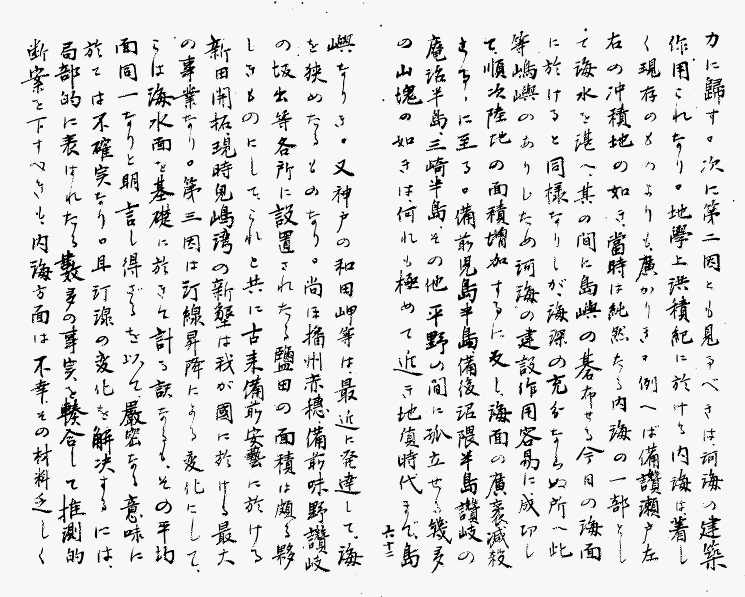 力に歸す。次に第二因とも見るべきは、河海の建築
作用これなり。地學上洪積紀に於ける内海は著し
く現存のものよりも、廣かりき。例へば備讃瀬戸左
右の冲積地の如き、當時は純然たる内海の一部とし
て海水を湛へ、其の間に島嶼の碁布せる今日の海面
に於けると同様なりしが、海深の充分ならぬ所へ此
等嶋嶼のありしため河海の建設作用容易に成功し
て、順次陸地の面積増加するに反し海面の廣袤減殺
するに至る。備前児島半島、備後沼隈半島、讃岐の
庵治半島、三崎半島、その他平野の間に孤立せる幾多
の山塊の如きは、何れも極めて近き地質時代まで、島
六十三
嶼なりき。又神戸の和田岬等は、最近に発達して、海
を狹めたるものなり。尚ほ播州赤穗、備前味野、讃岐
の坂出等各所に設置されたる鹽田の面積は頗る夥
しきものにして、これと共に古来備前安藝に於ける
新田開拓現時児嶋湾の新墾は我が國に於ける最大
の事業なり。第三因は汀線昇降による変化にして、
こは海水面を基礎に於きて計る訳なるも、その平均
面同一なりと明言し得ざるを以て、嚴密なる意味に
於ては不確実なり。且汀線の変化を解決するには、
局部的に表はれたる數多の事実を輳合して推測的
断案を下すべきも、内海方面は不幸その材料乏しく